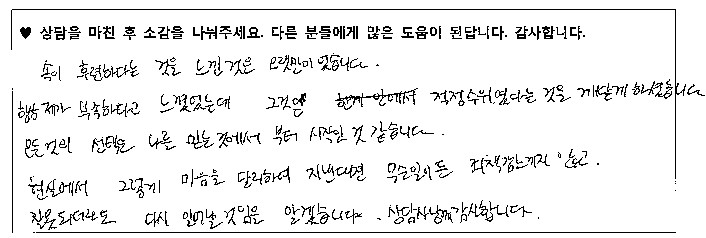 ♥ 상담을 마친 후 소감을 나눠주세요. 다른 분들에게 많은 도움이 된답니다. 감사합니다.
속이 후련하다는 것을 느낀것은 오랫만이었습니다.
항상 제가 부족하다고 느꼈었는데 그것은 적정수위였다는 것을 깨닫게 하셨습니다
모든 것의 선택은 나를 믿는것에서 부터 시작인 것 같습니다.
현실에서 그렇게 마음을 달리하여 지낸다면 무슨일이든 죄책감느끼지 않고.
잘못되더라도 다시 일어날것임을 알겠습니다. 상담사님께감사합니다.